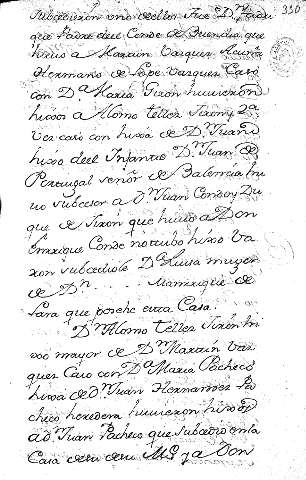 330
subcedieron uno de ellos fue D.n
que Padre del Conde de Buendia que
hixo a Martin Vazquez Acuña
Hermano de Lope Vazquez Casó
con D.a Maria Jirón huvieron
hixos a Alonso tellez Jiron y 2a
vez casó con hixa de D.n Juan
hixo del Infante D.n Juan de
Portugal señor de Balencia hu
vo subcesor a D.n Juan Conde y Du
que de Jirón que huvo a Don
Enrrique Conde no tubo hixo va
ron subcediole D.a Luisa muger
de D.n Manrrique de
Lara que posehe esta Casa.
D.n Alonso tellez Jirón hi
xo mayor de D.n Martin Vaz
quez Casó con D.a Maria Pacheco
hixa de D.n Juan Hernandez Pa
checo heredera huvieron hixo
a D.n Juan Pacheco que subcedio en la
Casa de su M.e y a Don